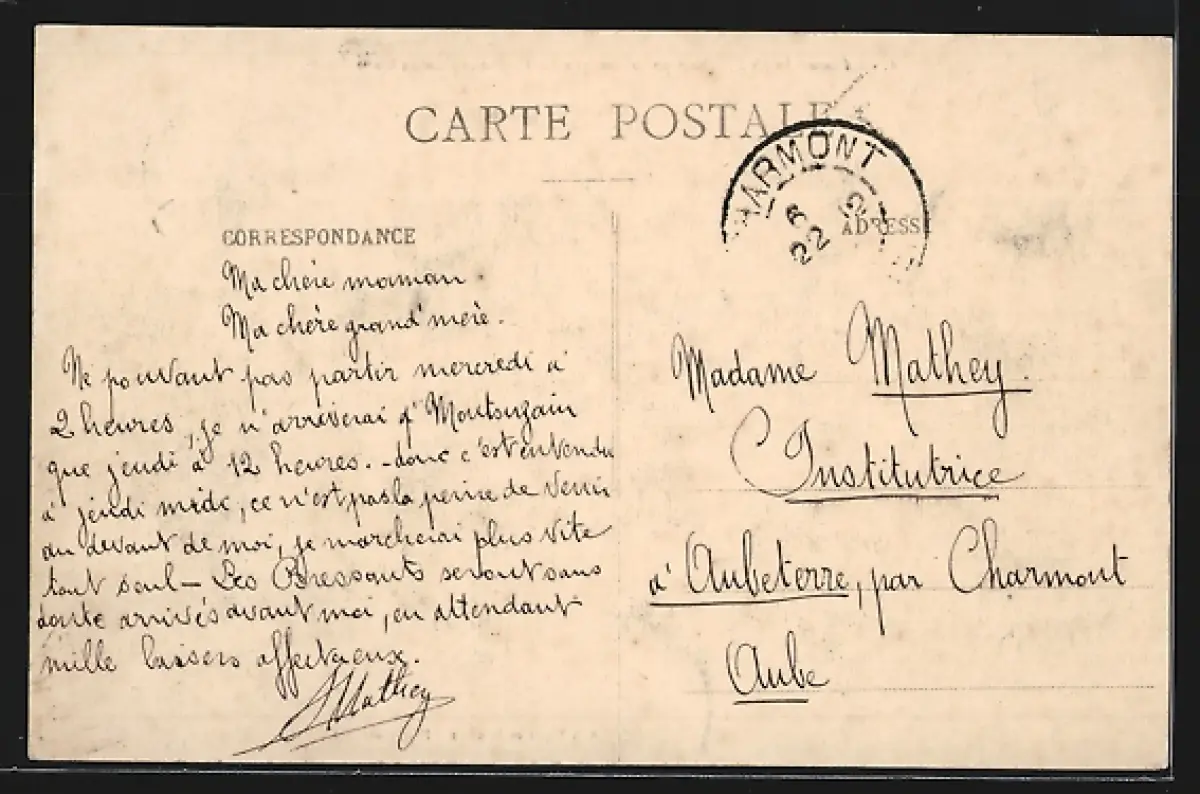 CARTE POSTALE
CHARMONT
6
22 12
CORRESPONDANCE
ADRESSE
Ma chère maman.
Ma chère grand'mère.
Ne pouvant pas partir mercredi à
2 heures, je n'arriverai à Montsuzain
que jeudi à 12 heures. - donc c'est entendu
à jeudi midi, ce n'est pas la peine de venir
au devant de moi, je marcherai plus vite
tout seul — Les seront sans
doute arrivés avant moi, en attendant
mille baisers affectueux.
Mathey
Madame Mathey.
Institutrice
à Aubeterre, par Charmont
Aube